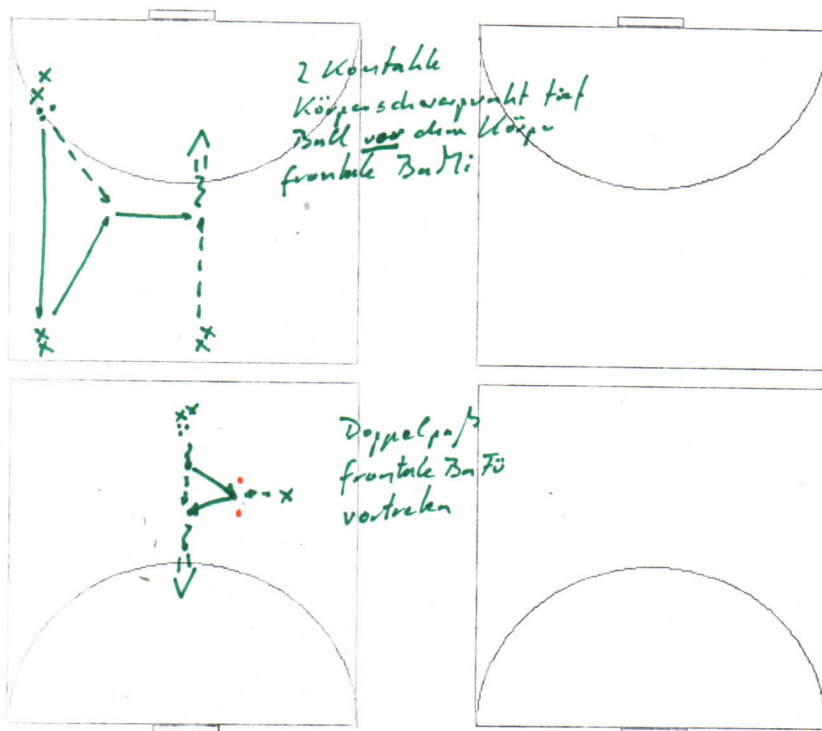 2 Kontakte
Körperschwerpunkt tief
Ball vor dem Körper
frontale BaMi
Doppelpaß
frontale BaFü
vortreten